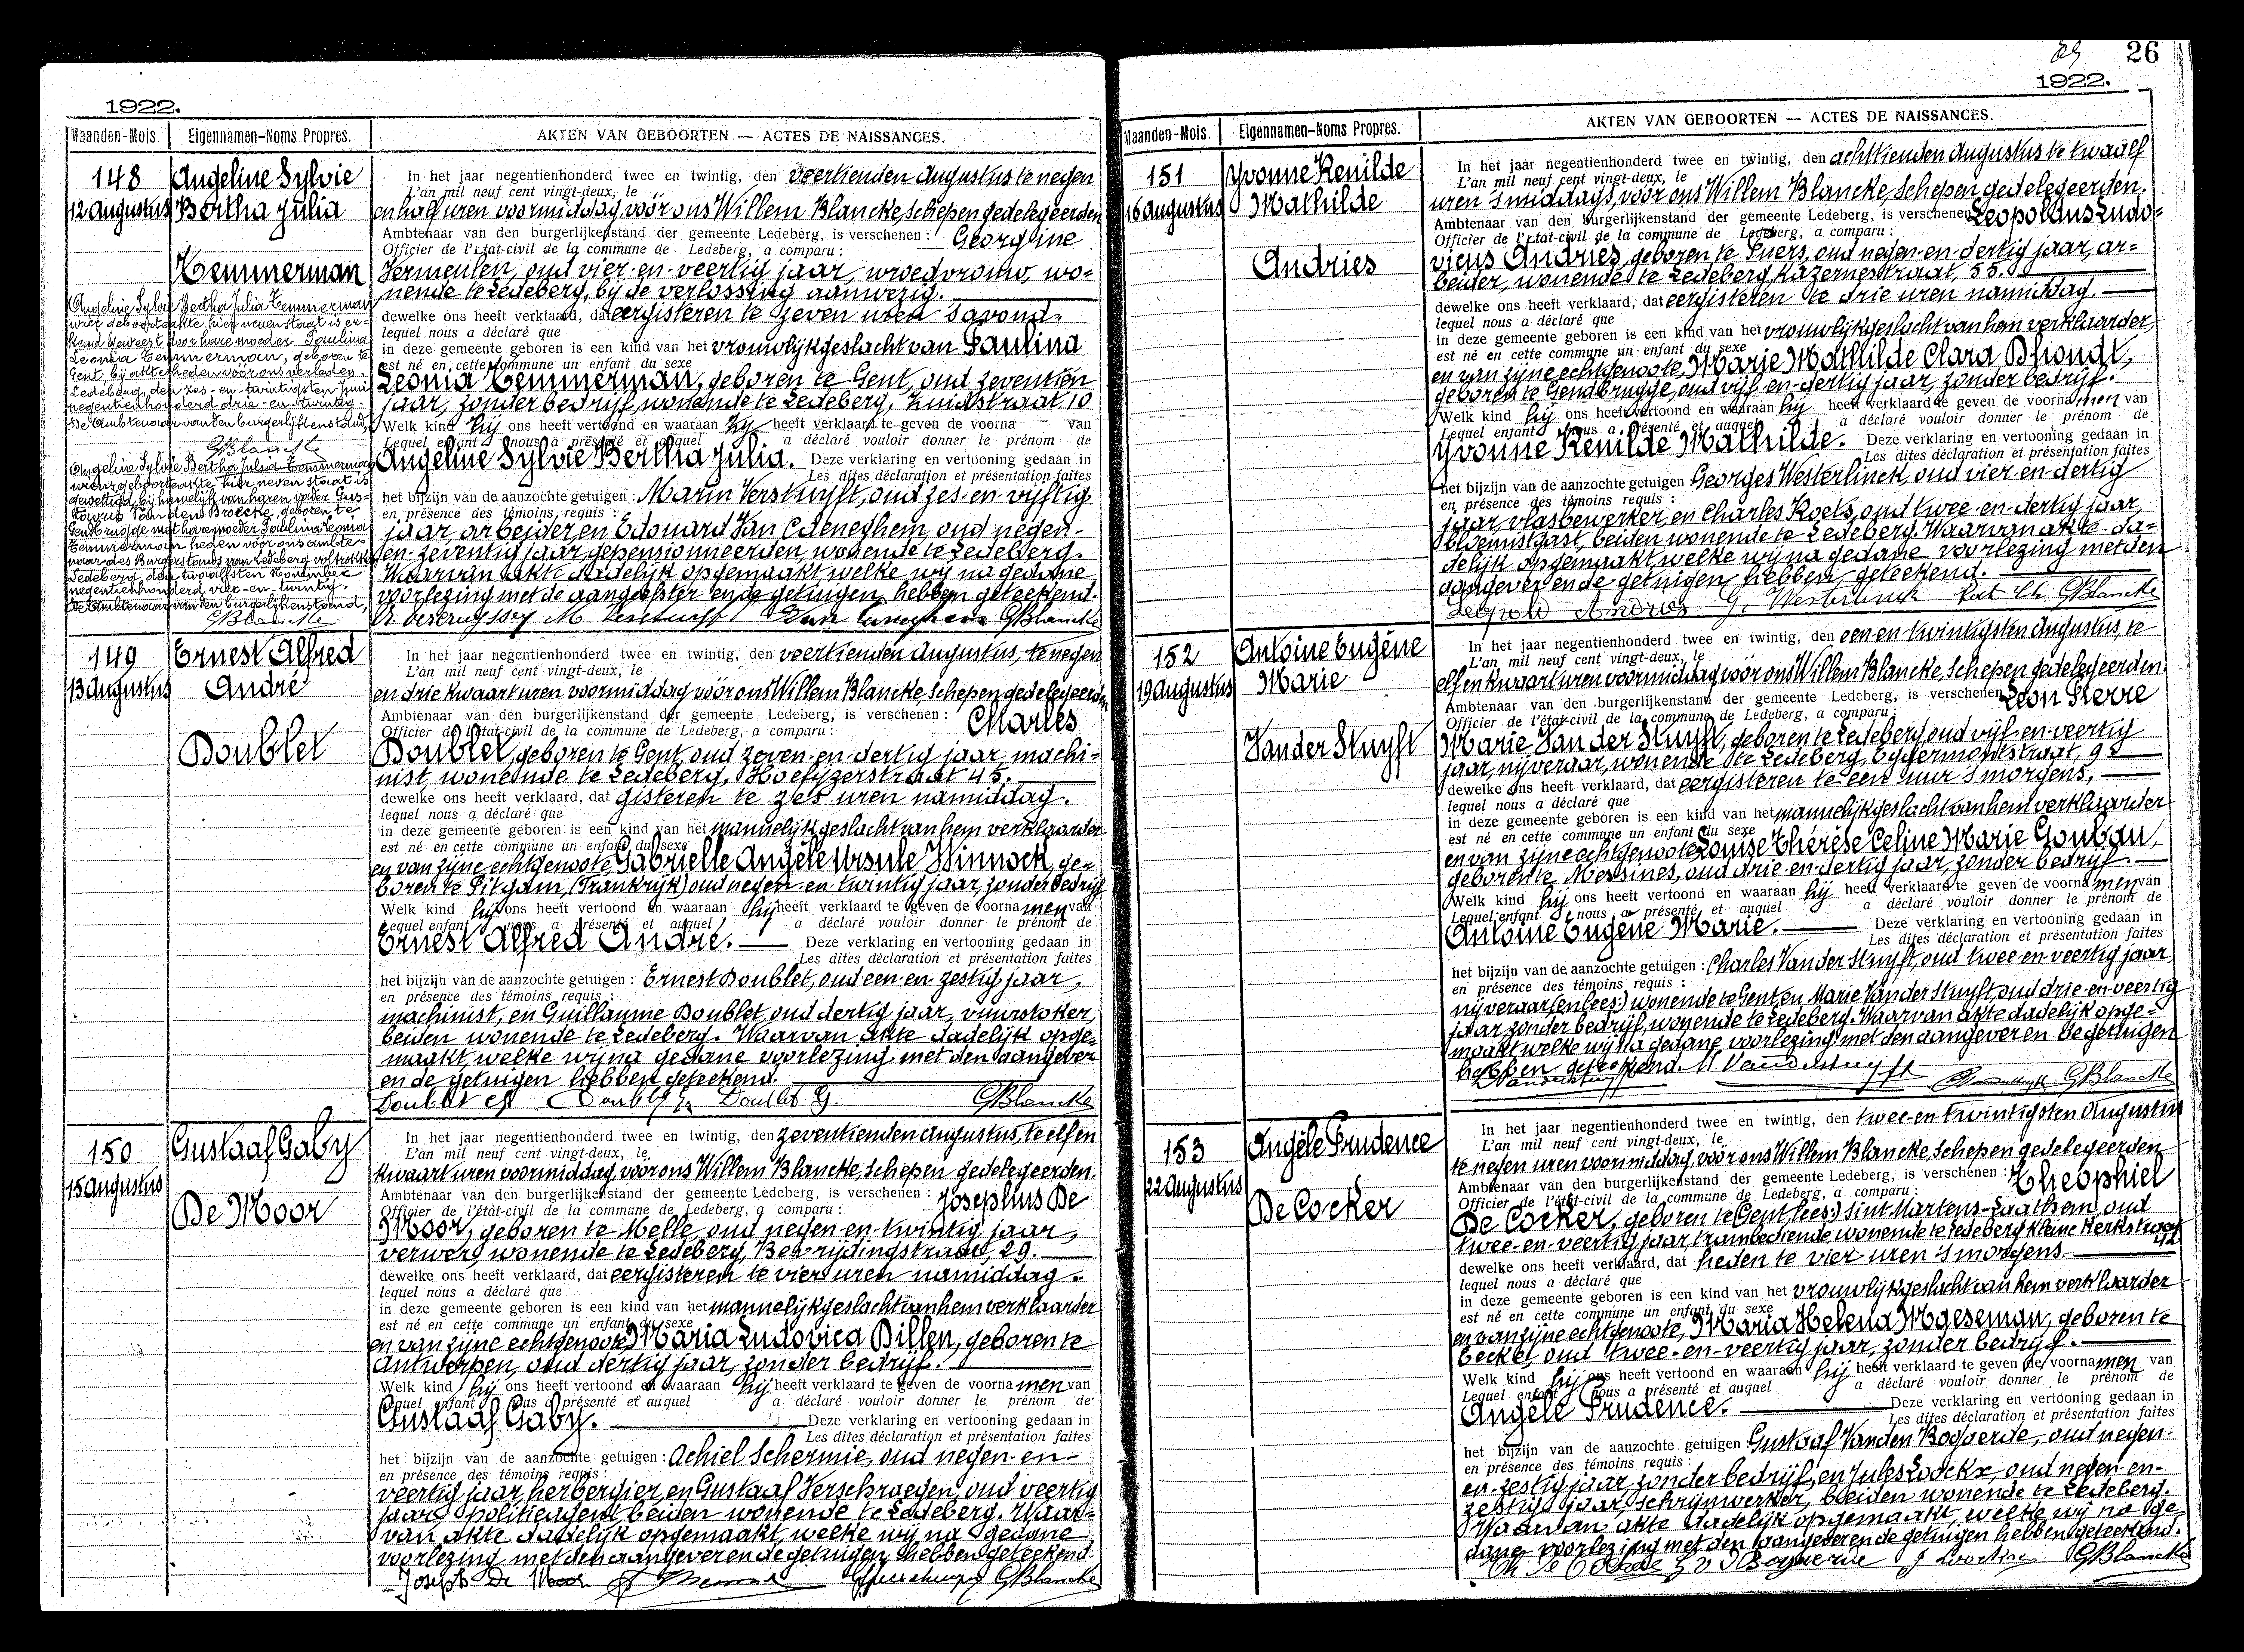 1922.
Maanden-Mois. Eigennamen-Noms Propres. AKTEN VAN GEBOORTEN — ACTES DE NAISSANCES.
148
12 Augustus
Angeline Sylvie
Bertha Julia
Temmerman
Angeline Sylvie Bertha Julia Temmerman
wier geboorteakte hierneven staat is er-
kend geweest door hare moeder Paulina
Leonia Temmerman, geboren te
Gent, bij akte heden voor ons verleden.
Ledeberg, den zes-en-twintigsten Juni
negentienhonderd drie-en-twintig.
De Ambtenaar van den burgerlijkenstand,
GBlancke
Angeline Sylvie Bertha Julia Temmerman
wiens geboorteakte hier neven staat is
gewettigd bij huwelijk van haren vader Gus-
tavus Van den Broecke, geboren te
Gentbrugge met hare moeder Paulina Leonia
Temmerman heden vóór ons ambte-
naar des Burgerstands van Ledeberg voltrokken
Ledeberg, den twaalfsten November
negentienhonderd vier-en-twintig.
De Ambtenaar van den burgerlijkenstand,
GBlancke
In het jaar negentienhonderd twee en twintig, den veertienden Augustus te negen
L'an mil neuf cent vingt-deux, le
en half uren voormiddag vóór ons Willem Blancke, Schepen gedelegeerden
Ambtenaar van den burgerlijkenstand der gemeente Ledeberg, is verschenen : Georgine
Officier de l'état-civil de la commune de Ledeberg, a comparu :
Vermeulen, oud vier-en-veertig jaar, vroedvrouw, wo-
nende te Ledeberg, bij de verlossing aanwezig.
dewelke ons heeft verklaard, dat eergisteren te zeven uren 's avonds
lequel nous a déclaré que
in deze gemeente geboren is een kind van het vrouwlijk geslacht van Paulina
est né en cette commune un enfant du sexe
Leonia Temmerman, geboren te Gent, oud zeventien
jaar, zonder bedrijf, wonende te Ledeberg, Zuidstraat, 10
Welk kind zij ons heeft vertoond en waaraan zij heeft verklaard te geven de voorna van
Lequel enfant nous a présenté et auquel a déclaré vouloir donner le prénom de
Angeline Sylvie Bertha Julia. Deze verklaring en vertooning gedaan in
Les dites déclaration et présentation faites
het bijzijn van de aanzochte getuigen : Marin Verstuyft, oud zes-en-vijftig
en présence des témoins requis :
jaar, arbeider en Edouard Van Caeneghem, oud negen-
en-zeventig jaar, gepensionneerden, wonende te Ledeberg.
Waarvan akte dadelijk opgemaakt welke wij na gedane
voorlezing met de aangeefster en de getuigen hebben geteekend.
GBlancke
149
13 Augustus
Ernest Alfred
André
Doublet
In het jaar negentienhonderd twee en twintig, den veertienden Augustus, te negen
L'an mil neuf cent vingt-deux, le
en drie kwaart uren voormiddag vóór ons Willem Blancke, Schepen gedelegeerden
Ambtenaar van den burgerlijkenstand der gemeente Ledeberg, is verschenen : Charles
Officier de l'état-civil de la commune de Ledeberg, a comparu :
Doublet, geboren te Gent, oud zeven-en-dertig jaar, machi-
nist, wonende te Ledeberg, Hoefijzerstraat 45.
dewelke ons heeft verklaard, dat gisteren te zes uren namiddag.
lequel nous a déclaré que
in deze gemeente geboren is een kind van het mannelijk geslacht van hem verklaarder
est né en cette commune un enfant du sexe
en van zijne echtgenoote, Gabrielle Angèle Ursule Winnock, ge-
boren te Pitgam, (Frankrijk) oud negen-en-twintig jaar, zonder bedrijf
Welk kind hij ons heeft vertoond en waaraan hij heeft verklaard te geven de voorna men van
Lequel enfant nous a présenté et auquel a déclaré vouloir donner le prénom de
Ernest Alfred André. Deze verklaring en vertooning gedaan in
Les dites déclaration et présentation faites
het bijzijn van de aanzochte getuigen : Ernest Doublet, oud een-en-zestig jaar,
en présence des témoins requis :
machinist, en Guillaume Doublet, oud dertig jaar, vuurstoker,
beiden wonende te Ledeberg. Waarvan akte dadelijk opge-
maakt, welke wij na gedane voorlezing met den aangever
en de getuigen hebben geteekend.
Doublet Doublet Doublet G. GBlancke
150
15 Augustus
Gustaaf Gaby
De Moor
In het jaar negentienhonderd twee en twintig, den zeventienden Augustus, te elf en
L'an mil neuf cent vingt-deux, le
kwaart uren voormiddag, vóór ons Willem Blancke, Schepen gedelegeerden.
Ambtenaar van den burgerlijkenstand der gemeente Ledeberg, is verschenen : Josephus De
Officier de l'état-civil de la commune de Ledeberg, a comparu :
Moor, geboren te Melle, oud negen-en-twintig jaar,
verwer, wonende te Ledeberg, Bevrijdingstraat, 29.
dewelke ons heeft verklaard, dat eergisteren te vier uren namiddag.
lequel nous a déclaré que
in deze gemeente geboren is een kind van het mannelijk geslacht van hem verklaarder
est né en cette commune un enfant du sexe
en van zijne echtgenoote, Maria Ludovica Dillen, geboren te
Antwerpen, oud dertig jaar, zonder bedrijf.
Welk kind hij ons heeft vertoond en waaraan hij heeft verklaard te geven de voorna men van
Lequel enfant nous a présenté et auquel a déclaré vouloir donner le prénom de
Gustaaf Gaby. Deze verklaring en vertooning gedaan in
Les dites déclaration et présentation faites
het bijzijn van de aanzochte getuigen : Achiel Schermie, oud negen-en-
en présence des témoins requis :
veertig jaar, herbergier, en Gustaaf Verschraegen, oud veertig
jaar, politieagent, beiden wonende te Ledeberg. Waar-
van akte dadelijk opgemaakt, welke wij na gedane
voorlezing met den aangever en de getuigen hebben geteekend.
Joseph De Moor GBlancke
26
1922.
Maanden-Mois. Eigennamen-Noms Propres. AKTEN VAN GEBOORTEN — ACTES DE NAISSANCES.
151
16 Augustus
Yvonne Renilde
Mathilde
Andries
In het jaar negentienhonderd twee en twintig, den achttienden Augustus te twaalf
L'an mil neuf cent vingt-deux, le
uren 's middags, vóór ons Willem Blancke, Schepen gedelegeerden.
Ambtenaar van den burgerlijkenstand der gemeente Ledeberg, is verschenen Leopoldus Ludo-
Officier de l'état-civil de la commune de Ledeberg, a comparu :
vicus Andries, geboren te Puers, oud negen-en-dertig jaar, ar-
beider, wonende te Ledeberg, Kazernestraat, 55.
dewelke ons heeft verklaard, dat eergisteren te drie uren namiddag.
lequel nous a déclaré que
in deze gemeente geboren is een kind van het vrouwlijk geslacht van hem verklaarder,
est né en cette commune un enfant du sexe
en van zijne echtgenoote, Marie Mathilde Clara Dhondt,
geboren te Gendbrugge, oud vijf-en-dertig jaar, zonder bedrijf.
Welk kind hij ons heeft vertoond en waaraan hij heeft verklaard te geven de voorna men van
Lequel enfant nous a présenté et auquel a déclaré vouloir donner le prénom de
Yvonne Renilde Mathilde. Deze verklaring en vertooning gedaan in
Les dites déclaration et présentation faites
het bijzijn van de aanzochte getuigen Georges Westerlinck, oud vier-en-dertig
en présence des témoins requis :
jaar, vlasbewerker, en Charles Roels, oud twee-en-dertig jaar,
bloemistgast, beiden wonende te Ledeberg. Waarvan akte da-
delijk opgemaakt, welke wij na gedane voorlezing met den
aangever en de getuigen hebben geteekend.
Leopold Andries G. Westerlinck GBlancke
152
19 Augustus
Antoine Eugène
Marie
Van der Stuyft
In het jaar negentienhonderd twee en twintig, den een-en-twintigsten Augustus, te
L'an mil neuf cent vingt-deux, le
elf en kwaart uren voormiddag vóór ons Willem Blancke, Schepen gedelegeerden.
Ambtenaar van den burgerlijkenstand der gemeente Ledeberg, is verschenen Leon Pierre
Officier de l'état-civil de la commune de Ledeberg, a comparu :
Marie Van der Stuyft, geboren te Ledeberg, oud vijf-en-veertig
jaar, nijveraar, wonende te Ledeberg, Eggermontstraat, 9
dewelke ons heeft verklaard, dat eergisteren te een uur 's morgens,
lequel nous a déclaré que
in deze gemeente geboren is een kind van het mannelijk geslacht van hem verklaarder
est né en cette commune un enfant du sexe
en van zijne echtgenoote Louise Thérèse Celine Marie Gouban,
geboren te Messines, oud drie-en-dertig jaar, zonder bedrijf.
Welk kind hij ons heeft vertoond en waaraan hij heeft verklaard te geven de voorna men van
Lequel enfant nous a présenté et auquel a déclaré vouloir donner le prénom de
Antoine Eugène Marie. Deze verklaring en vertooning gedaan in
Les dites déclaration et présentation faites
het bijzijn van de aanzochte getuigen : Charles Van der Stuyft, oud twee-en-veertig jaar
en présence des témoins requis :
nijveraar (en lees:) wonende te Gent, en Marie Van der Stuyft, oud drie-en-veertig
jaar, zonder bedrijf, wonende te Ledeberg. Waarvan akte dadelijk opge-
maakt welke wij na gedane voorlezing met den aangever en de getuigen
hebben geteekend. M Vanderstuyft GBlancke
153
22 Augustus
Angèle Prudence
De Cocker
In het jaar negentienhonderd twee en twintig, den twee-en-twintigsten Augustus
L'an mil neuf cent vingt-deux, le
te negen uren voormiddag, vóór ons Willem Blancke, Schepen gedelegeerden
Ambtenaar van den burgerlijkenstand der gemeente Ledeberg, is verschenen : Theophiel
Officier de l'état-civil de la commune de Ledeberg, a comparu :
De Cocker, geboren te Gent, (lees:) Sint Martens-Laathem, oud
twee-en-veertig jaar, trambediende wonende te Ledeberg Kleine Kerkstraat
42
dewelke ons heeft verklaard, dat heden te vier uren 's morgens.
lequel nous a déclaré que
in deze gemeente geboren is een kind van het vrouwlijk geslacht van hem verklaarder
est né en cette commune un enfant du sexe
en van zijne echtgenoote, Maria Helena Maeseman, geboren te
Beckel, oud twee-en-veertig jaar, zonder bedrijf.
Welk kind hij ons heeft vertoond en waaraan hij heeft verklaard te geven de voorna men van
Lequel enfant nous a présenté et auquel a déclaré vouloir donner le prénom de
Angèle Prudence. Deze verklaring en vertooning gedaan in
Les dites déclaration et présentation faites
het bijzijn van de aanzochte getuigen : Gustaaf Van den Bogaerde, oud negen-
en présence des témoins requis :
en-zestig jaar, zonder bedrijf, en Jules Loockx, oud negen-en-
zestig jaar, schrijnwerker, beiden wonende te Ledeberg.
Waarvan akte dadelijk opgemaakt, welke wij na ge-
dane voorlezing met den aangever en de getuigen hebben geteekend.
GBlancke